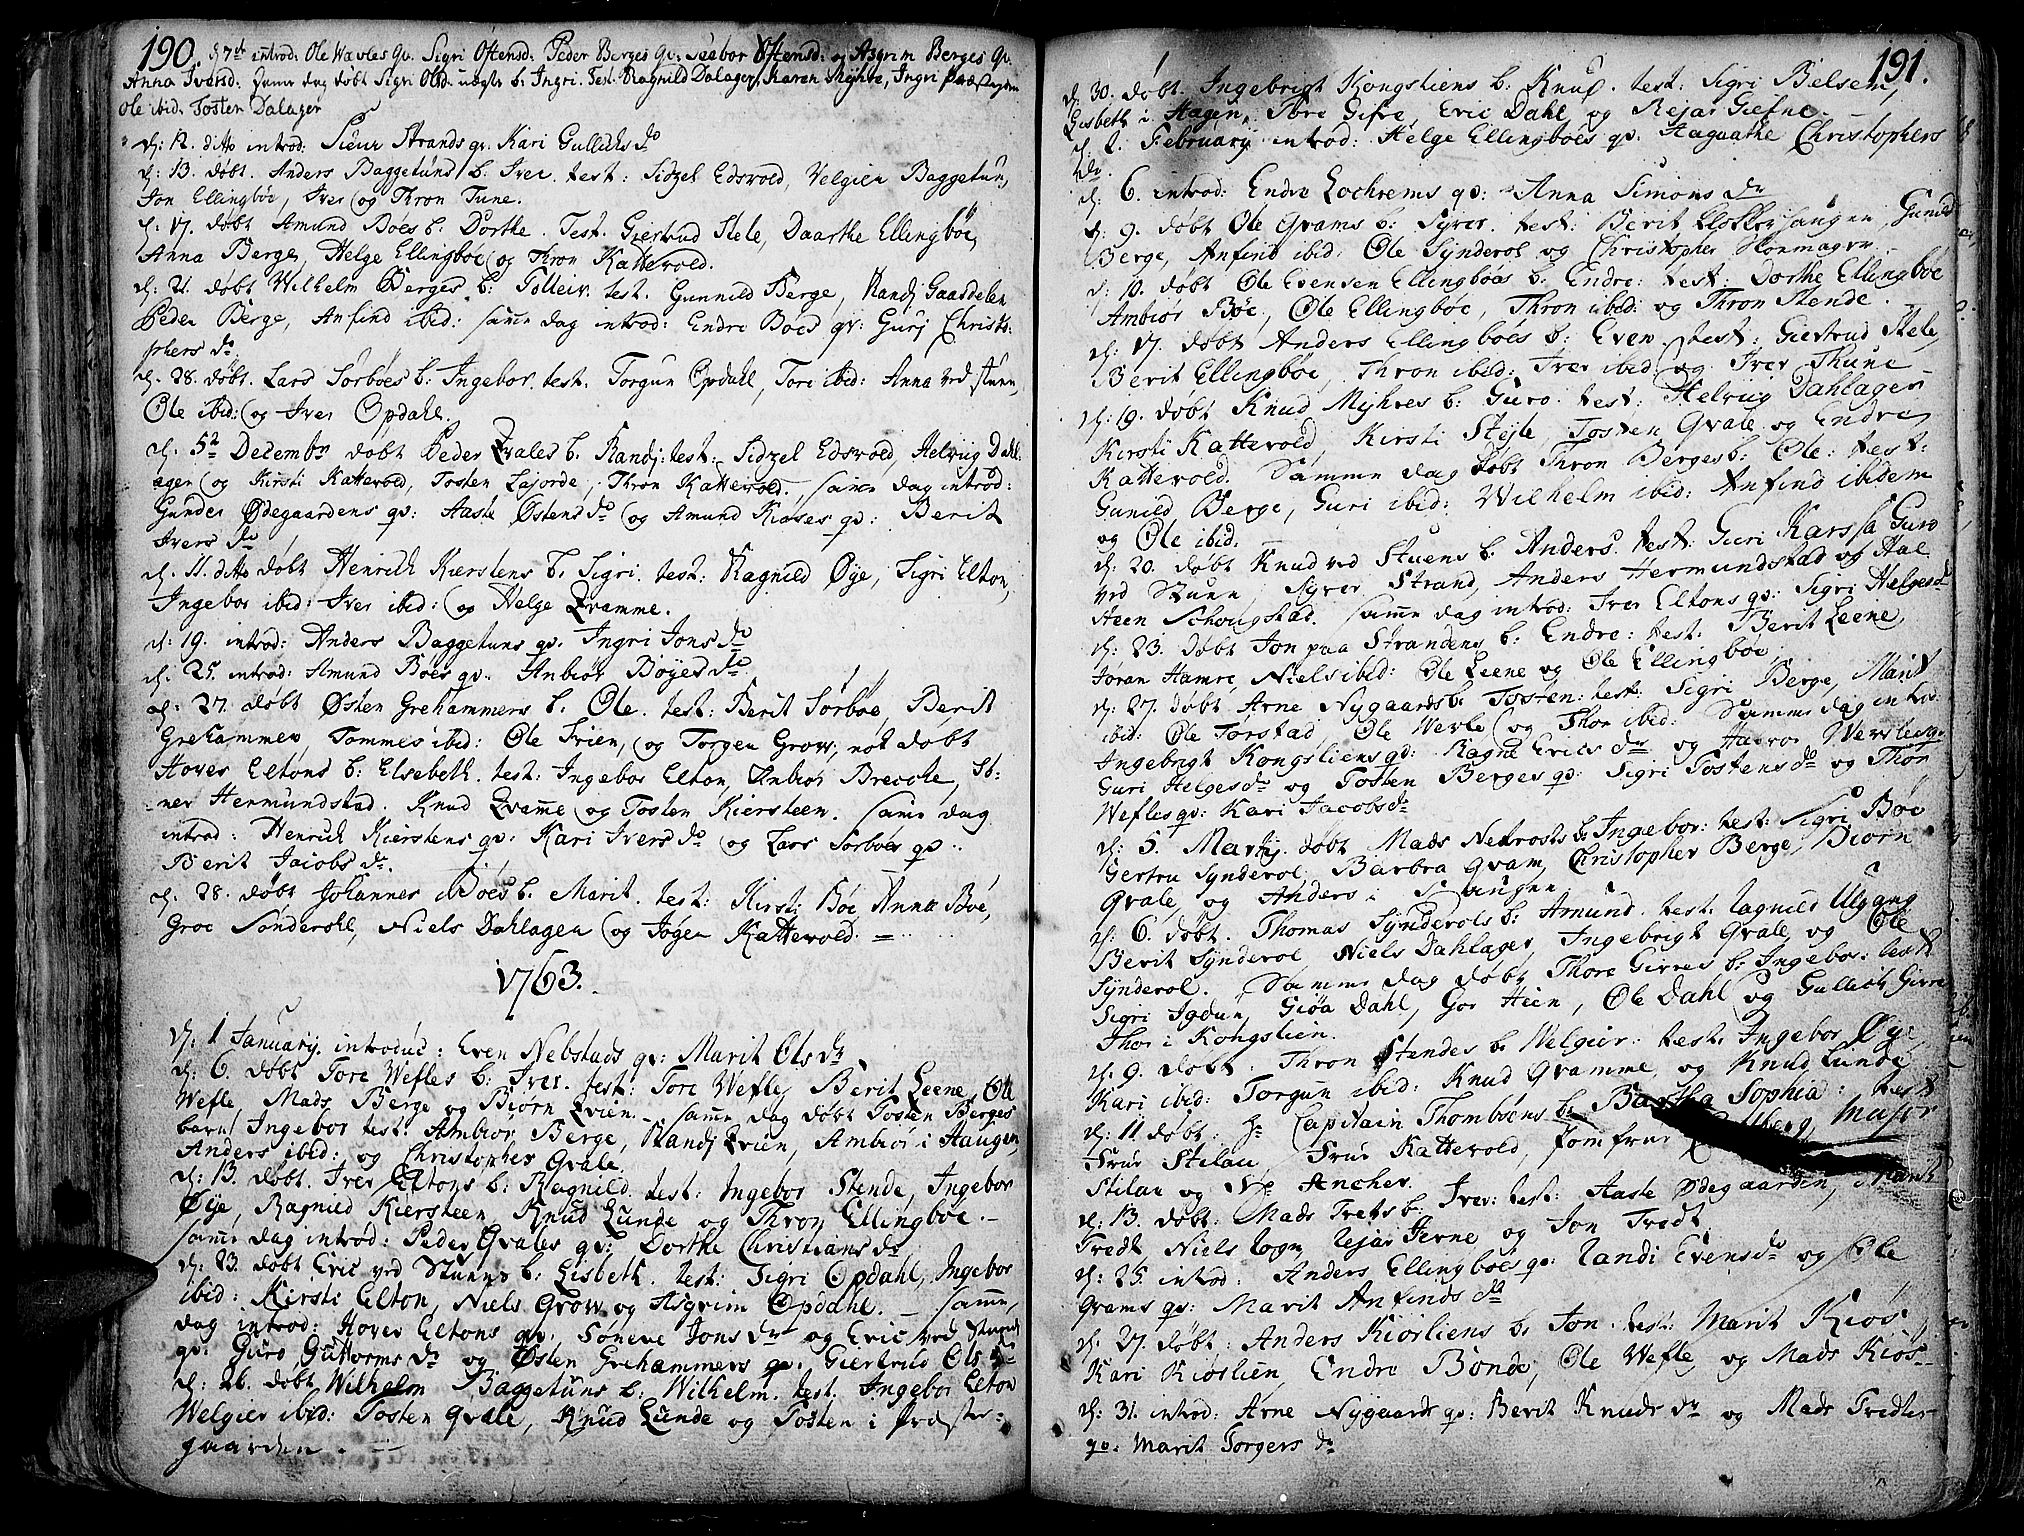 190. d. 7de introd: Ole Wæfles qv. Sigri Østensd: Peder Berges qv: Siabor Østensd: og Asgrim Berges qv.
Anna Iversd: samme dag døbt Sigri Olsd. uægte b. Ingri. Test. Ragnild Dalager, Karen Myhre, Ingri
Ole ibid. Tosten Dalager
d: 12. ditto introd: Siur Strands qv. Kari Gullichs dr
d: 13. døbt. Anders Baggetuns b. Iver. test: Sidzel Edsvold, Velgier Baggetun,
Jon Ellingbøe, Iver og Thron Tune.
d: 17. døbt Amund Bøes b: Dorthe. Test. Giertrud Stele, Daarthe Ellingbøe,
Anna Berge, Helge Ellingbøe og Thron Kattevold.
d: 21. døbt Wilhelm Berges b: Tolleiv. test. Gunnild Berge, Randj Gaardelen
Peder Berge, Anfind ibid: samme dag introd: Endre Bøes qv: Gurj Christo:
phers dr
d. 28. døbt. Lars Sørbøes b: Ingebor. test: Torgun Opdahl, Tore ibid: Anna ved stuen,
Ole ibid: og Iver Opdahl.
d. 5te Decembr døbt Peder Qvales b. Randj: test: Sidzel Edsvold, Helvig Dahl:
agen og Kirsti Kattevold, Tosten Lajorde, Thron Kattevold. samme dag introd:
Gunder Ødegaardens qv: Aaste Østens dr og Amund Kiøses qv: Berit
Ivers dr
d. 11. ditto døbt Henrich Kierstens b. Sigri. test: Ragnild Øye, Sigri Elton,
Ingebor ibid: Iver ibid: og Helge Qvamme.
d: 19. introd: Anders Baggetuns qv. Ingri Jons dr
d. 25. introd: Amund Bøes qv. Anbiør Boyes dr
d: 27. døbt Østen Grehammers b. Ole. test: Berit Sørbøe, Berit
Grehammer, Tommes ibid: Ole Frien, og Torgen Grow, not døbt
Hover Eltons b: Elsebeth. test: Ingebor Elton, Anbiør Brecche, Si:
ner Hermundstad. Knud Qvamme og Tosten Kiersteen. samme dag
introd: Henrich Kierstens qv: Kari Ivers dr og Lars Sørbøes qv:
Berit Jacobs dr.
d. 28. døbt Johannes Bøes b. Marit. test: Kirsti Bøe Anna Bøe,
Groe Sønderohl, Niels Dahlagen og Jøgen Kattevold.
1763.
d. 1 January. introduc: Even Nebstads qv: Marit Ols dr
d: 6. døbt Tore Wefles b: Iver. test: Tore Wefle, Berit Leene, Ole
Wefle, Mads Berge og Biørn Qvien. samme dag døbt Tosten Berges
barn Ingebor test: Ambiør Berge, Randj Qvien, Ambiør i Haugen,
Anders ibid: og Christopher Qvale.
d: 13. døbt. Iver Eltons b: Ragnild. test: Ingebor Stende, Ingebor
Øye, Ragnild Kiersteen, Knud Lunde og Thron Ellingbøe.
samme dag introd: Peder Qvales qv: Dorthe Christians dr
d: 23. døbt Eric ved Stuens b: Lisbeth. test: Sigri Opdahl, Ingebor
ibid: Kirsti Elton, Niels Grow og Asgrim Opdahl. samme
dag introd: Hover Eltons qv. Søneve Jons dr og Eric ved Stuens
qv: Guro Guttorms dr og Østen Grehammers qv: Giertrud Ols dr
d: 26. døbt Wilhelm Baggetuns b: Wilhelm. test. Ingebor Elton
Welgier ibid: Tosten Qvale, Knud Lunde og Tosten i Præste:
gaarden.
191.
d. 30. døbt. Ingebrigt Kongsliens b. Knuf. test: Sigri Bielsem,
Lisbeth i Hagen, Tore Gifre, Eric Dahl og Rejar Giefne.
d. 2. February introd: Helge Ellingbøes qv: Aagaathe Christophers
dr.
d: 6. introd: Endre Lochrems qv: Anna Simons dr
d. 9. døbt Ole Qvams b: Syver. test: Berit Klokkerhaugen, Gunild
Berge, Anfind ibid: Ole Synderol og Christopher Skomager.
d: 10. døbt Ole Evensen Ellingbøes b. Endre: test: Dorthe Ellingbøe
Ambiør Bøe, Ole Ellingbøe, Thron ibid: og Thron Stende.
d: 17. døbt Anders Ellingbøes b: Even. test: Giertrud Stele,
Berit Ellingbøe, Thron ibid: Iver ibid og Iver Thune
d: 19. døbt Knud Myhres b: Guro. test: Helvig Dahlager
Kirsti Kattevold, Kirsti Stejle, Tosten Qvale og Endre
Kattevold. Samme dag døbt Thron Berges b: Ole: test:
Gunild Berge, Guri ibid: Wilhelm ibid: Anfind ibidem
og Ole ibid:
d: 20. døbt Knud ved Stuens b. Anders. test: Guri Karssa Guro
ved Stuen, Syver Strand, Anders Hermundstad og Hal
steen Schougstad. samme dag introd: Iver Eltons qv: Sigri Helgesdr
d: 23. døbt Jon paa Strandens b: Endre: test: Berit Leene,
Jøran Hamre, Niels ibid: Ole Leene og Ole Ellingbøe
d: 27. døbt Arne Nygaards b: Tosten: test: Sigri Berge, Marit
ibid: Ole Torstad, Ole Wefle og Thor ibid: Samme dag introd:
Ingebrigt Kongsliens qv: Ragne Erics dr og Haavor Wefles qv:
Guri Helges dr og Tosten Berges qv: Sigri Tostens dr og Thor
Wefles qv: Kari Jacobs dr
d: 5. Martij. døbt Mads Nefrosts b: Ingebor: test: Sigri Bøe
Gertru Synderol, Barbra Qvam, Christopher Berge, Biørn
Qvale, og Anders i Haugen
d: 6. døbt. Thomas Synderols b: Amund. test: Ragnild Ulgang
Berit Synderol, Niels Dahlager, Ingebrigt Qvale og Ole
Synderol. Samme dag døbt Thore Girres b: Ingebor: test
Sigri Igdun, Giøa Dahl, Gor Hien, Ole Dahl og Gullich Girre
Thor i Kongslien.
d. 9. døbt. Thron Stendes b: Welgier: test: Ingebor Øye,
Kari ibid: Torgun ibid: Knud Qvamme, og Knud Lunde
d: 11 døbt: Hr Capitain Thombsens b: Bartha Sophia: test
Frue Stilau, Frue Kattevold, Jomfrue Major
Stilau og Mr Ancher.
d: 13. døbt: Mads Trets b: Iver: test: Aaste Ødegaarden, Marit
Tredt Niels Rogn, Rejar Jerne og Jon Tredt
d: 25. introd: Anders Ellingbøes qv: Randi Evens dr og Ole
Qvams qv: Marit Anfinds dr
d. 27. døbt: Anders Kiørliens b: Jon. test: Marit Kiøs,
Kari Kiørlien, Endre Bonde, Ole Wefle, og Mads Kiøs
d: 31. introd: Arne Nygaards qv: Berit Knuds dr og Mads Tredtes
qv: Marit Torgers dr